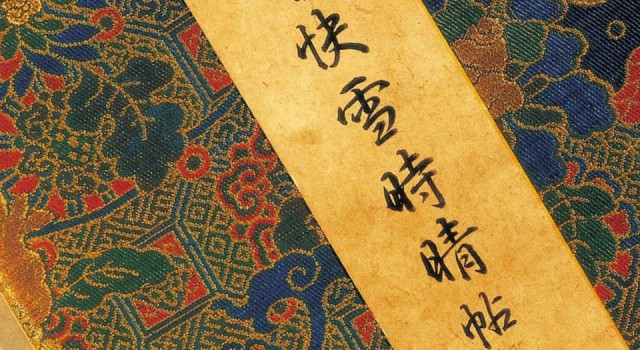 快雪時晴帖